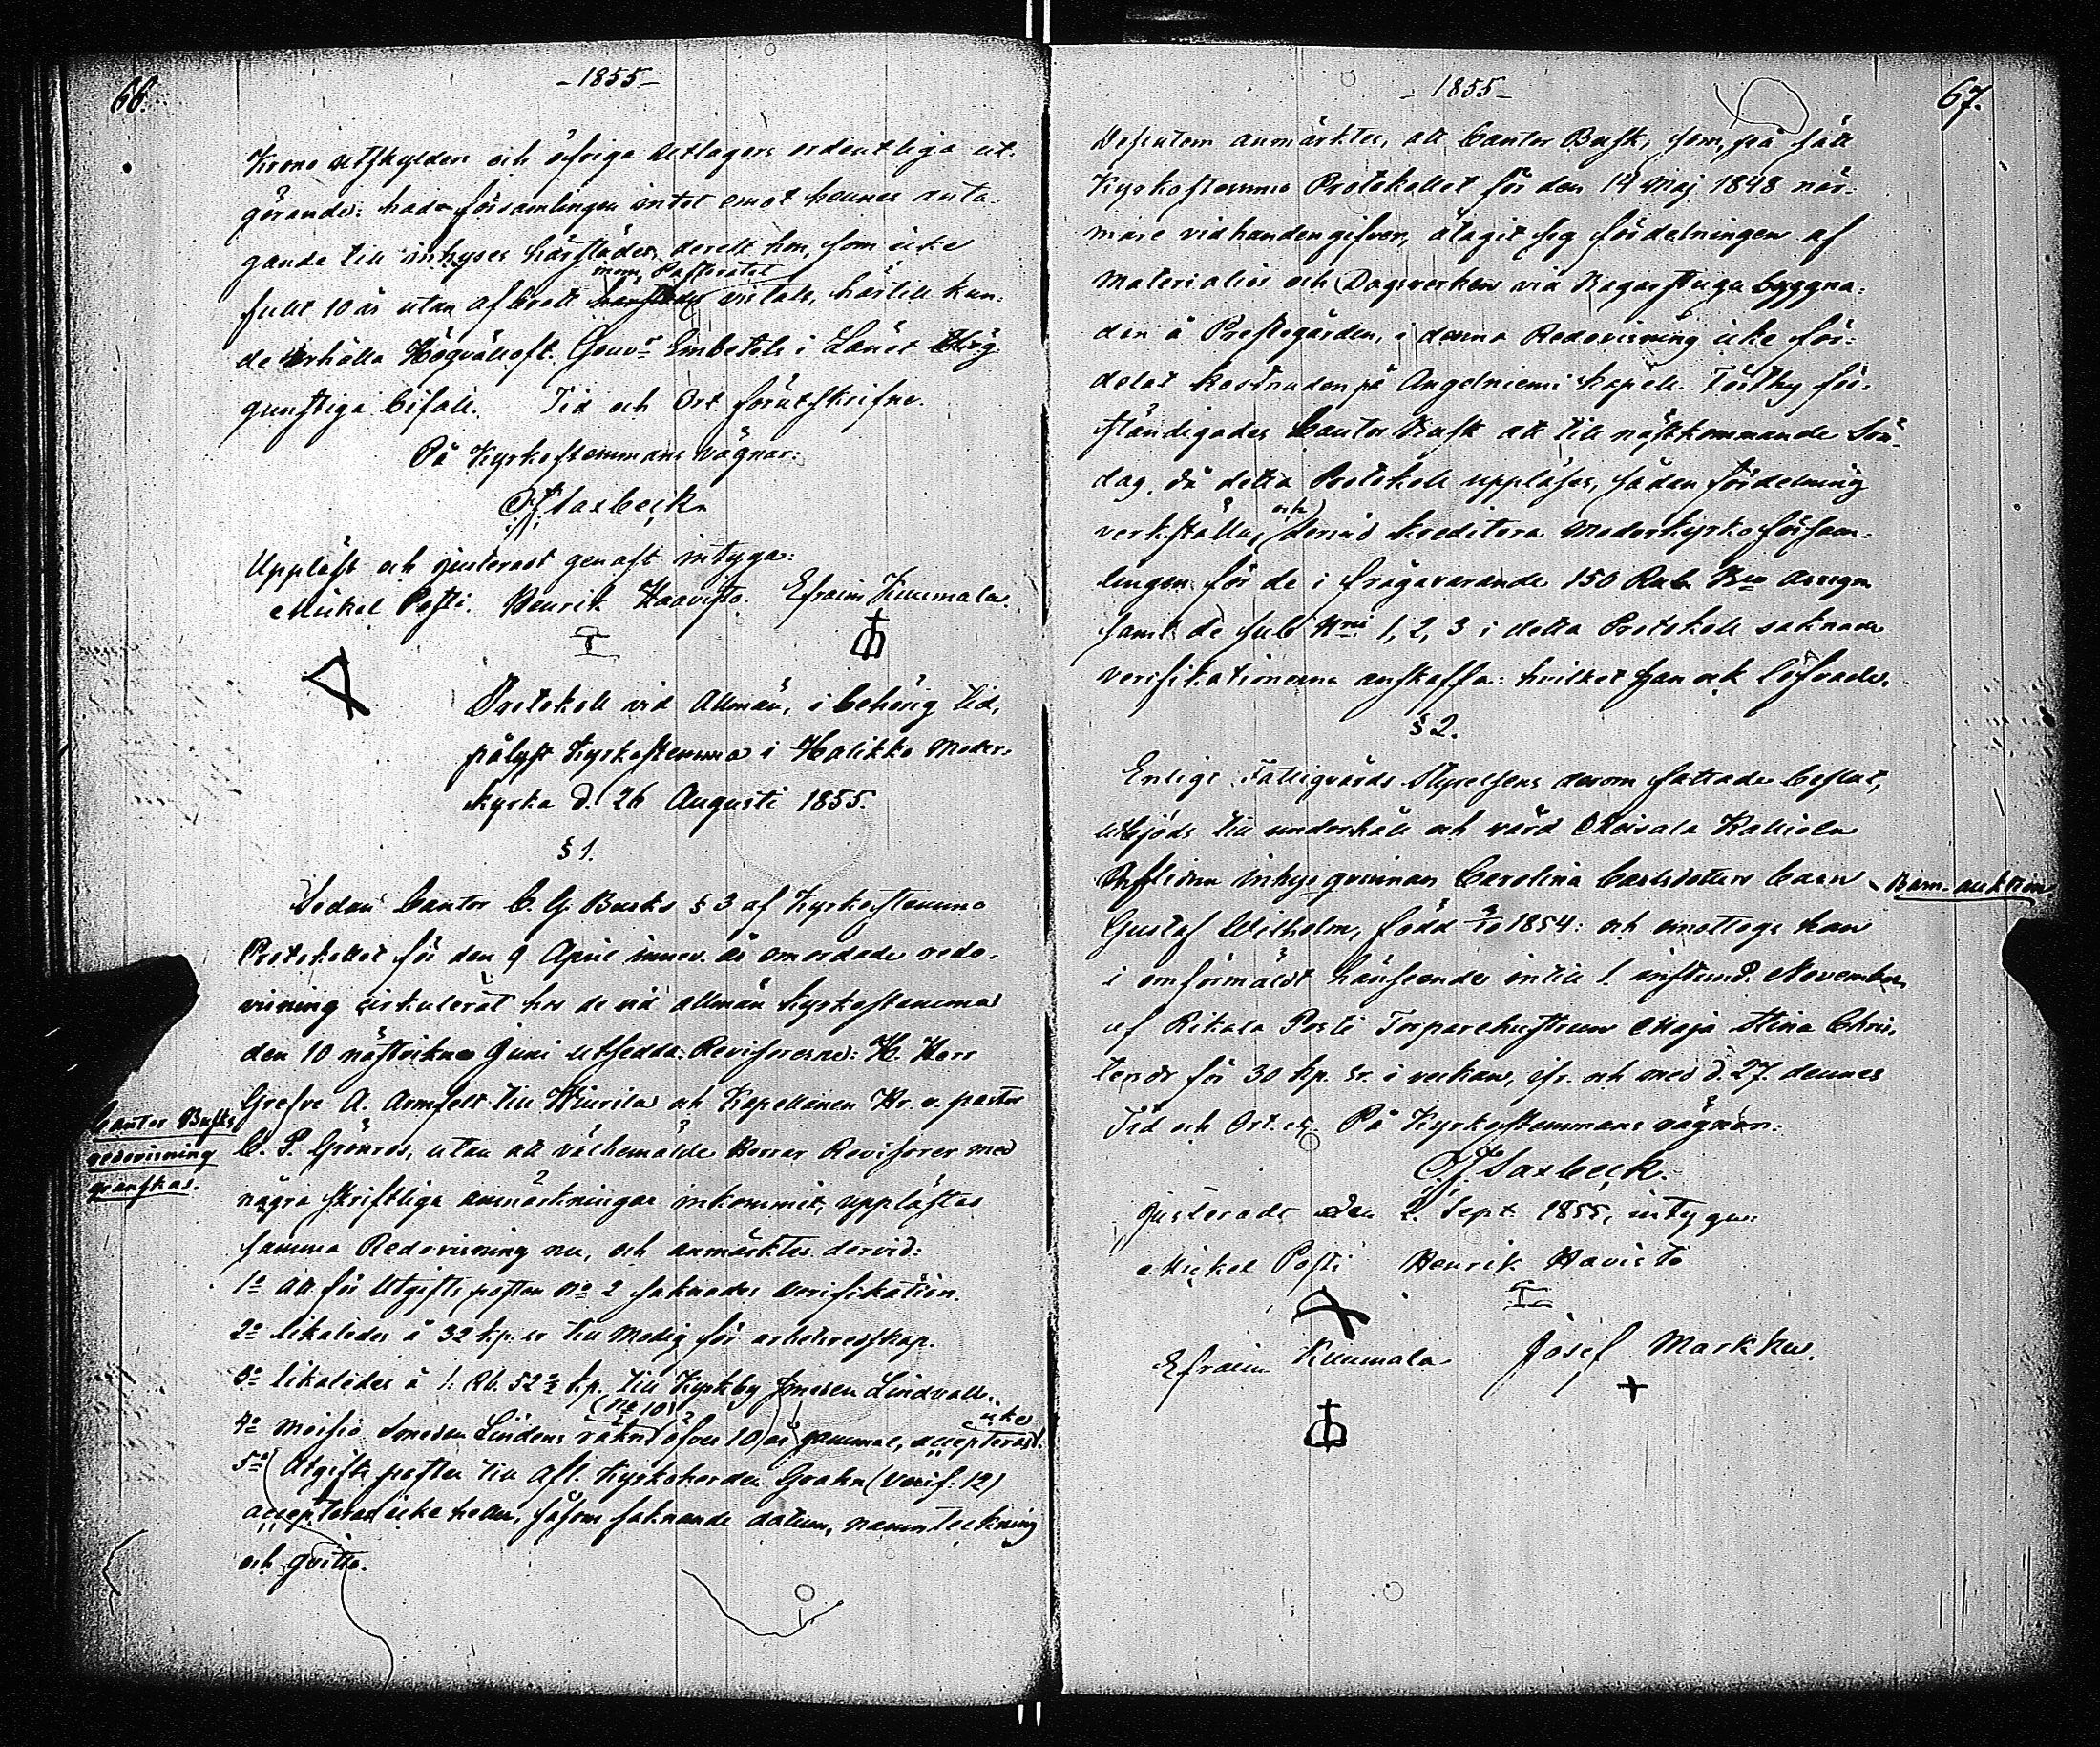 66.
-1855-
Krono utskylder och öfriga utlagors ordentliga ut-
görande: hade församlingen intet emot hennes anta-
gande till inhyses härstädes, derest hon, som icke
inom Pastoratet
fullt 10 år utan afbrott härstädes vistats, härtill kun-
de erhålla Högvällofl. Gouvrs Embetets i Länet Hög
gunstiga bifall. Tid och Ort förutskrifne.
På Kyrkostemmans vägnar:
Saxbeck.
Uppläst och justeradt genast intyga:
Mickel Posti. Henrik Haavisto. Efraim Kuumala.
Protokoll vid Allmän, i behörig tid,
pålyst Kyrkostemma i Halikko Moder-
kyrka d. 26 Augusti 1855.
§ 1.
Sedan Cantor C. G. Busks § 3 af Kyrkostemmo
Protokollet för den 9 April innev. år omordade redo-
visning cirkulerat hos de vid allmän kyrkostemma
den 10 nästvikne Juni utsedda Revisorerne: H. Herr
Grefve A. Armfelt till Wiurila och Kapellanen Hr. v. pastor
C. P. Grönros, utan att välbemälde Herrar Revisorer med
några skriftliga anmärkningar inkommit, upplästes
samma Redovisning nu, och anmärktes dervid:
Cantor Busks
redovisning
granskas.
1o att för Utgifts posten No 2 saknades verifikation.
2o likaledes å 32 kp. sr till Modig för arbetsredskap.
3o likaledes å 1. Rb. 52 ½ kp. till Kyrkby Smeden Lindvall.
(No 10) icke
4o Moisio Smeden Lindens räkn. öfver 10 år gammal, accepterad.
5o Utgifts posten till Afl. Kyrkoherden Grahn (Verif. 12)
accepterad icke heller, såsom saknande datum, namnteckning
och qvitto.
67.
-1855-
Dessutom anmärktes, att Cantor Busk, som, på sätt
Kyrkostemmo Protokollet för den 14 Maj 1848 när-
mare vidhandengifver, åtagit sig fördelningen af
Materialier och Dagsverken vid Bagarstugu byggna-
den å Prestegården, i denna Redovisning icke för-
delat kostnaden på Angelniemi kapell. Ty förthy för-
ständigades Cantor Busk att till nästkommande Sön-
dag, då detta Protokoll uppläses, sådan fördelning
och
verkställa, dervid kreditera Moderkyrko församl-
lingen för de i frågavarande 150 Rub. Bco Assign
samt de sub Nris 1, 2, 3 i detta Protokoll saknade
verifikationerna anskaffa: hvilket han ock lofvade.
§ 2.
Enligt Fattigvårds Styrelsens derom fattade beslut,
utbjöds till underhåll och vård Moisala Kalliola
inhys qvinnan Carolina Carlsdotters barn
Barn-auktion
Gustaf Wilhelm, född 1854: och emottogs han
i omförmäldt hänseende intill 1. instund. November
af Rikala Posti Torparehustrun Maja Stina Chris-
tersdr för 30 kp. sr. i veckan, ifr. och med d. 27. dennes
Tid och Ort. På Kyrkostemmans vägnar:
Saxbeck.
Justeradt den 2. Sept. 1855, intyga:
Mickel Posti Henrik Havisto
Efraim Kuumala Josef Markku.